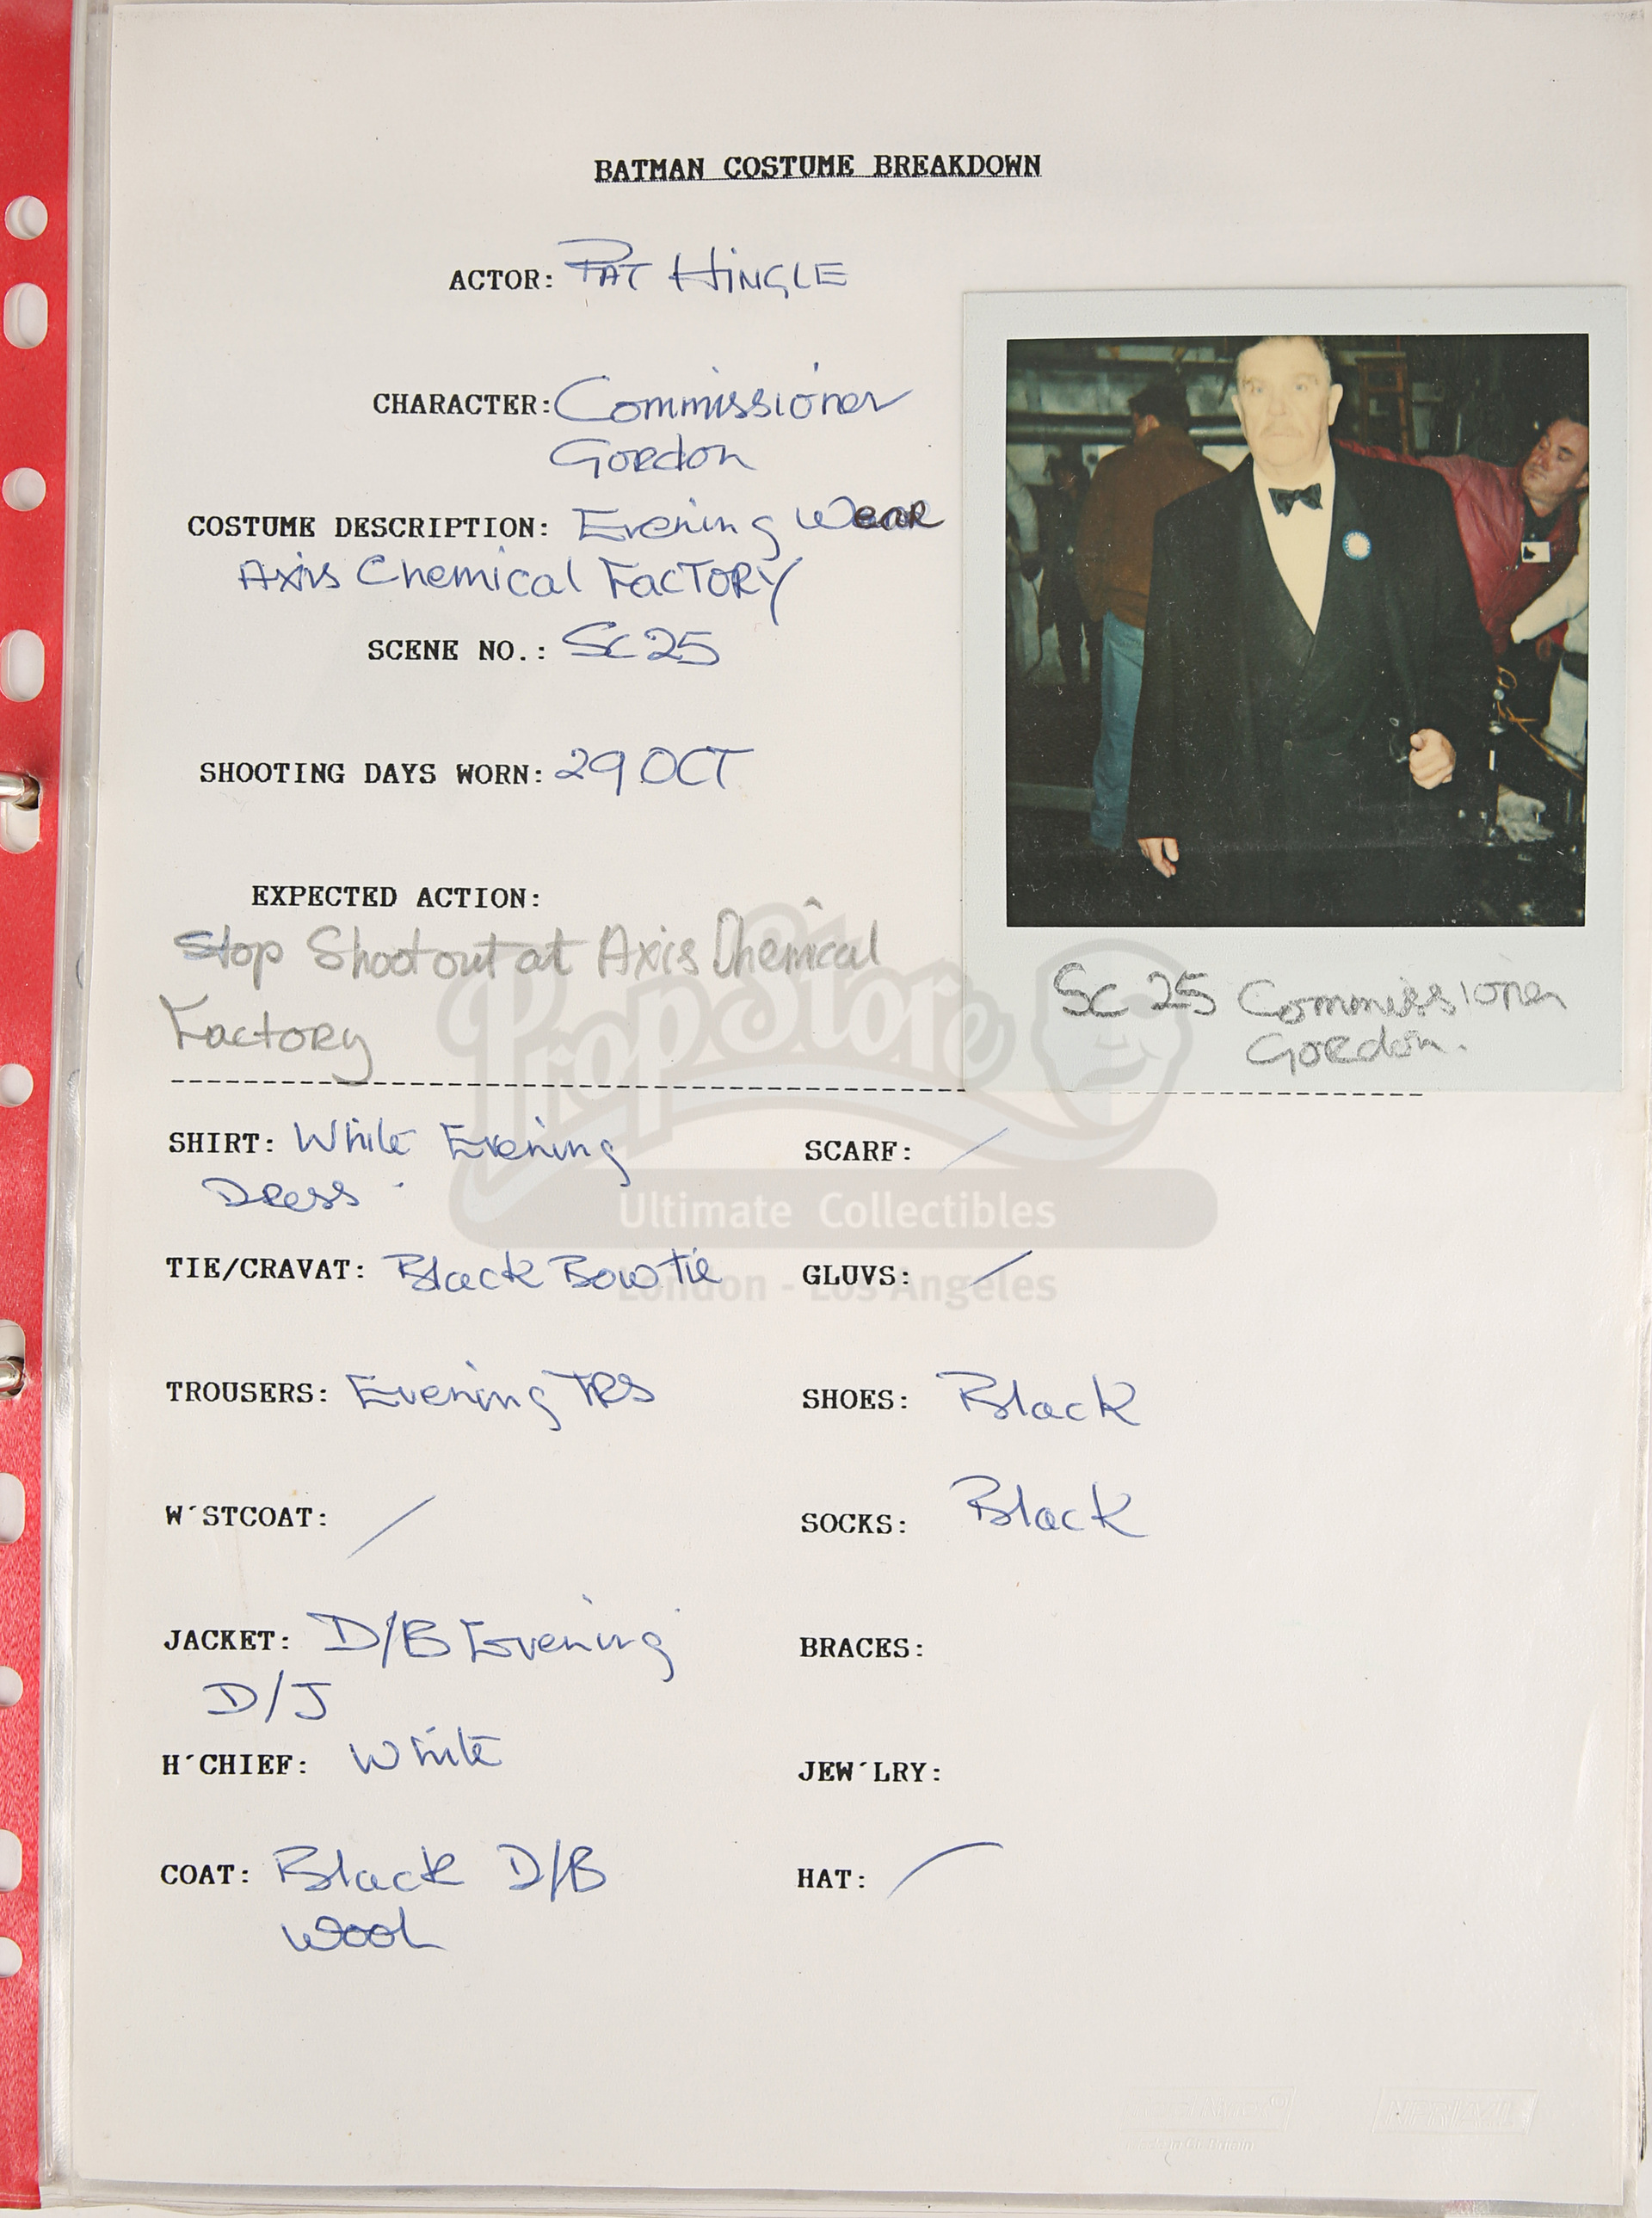 BATMAN COSTUME BREAKDOWN
ACTOR: PAT HINGLE
CHARACTER: Commissioner
Gordon
COSTUME DESCRIPTION: Evening Wear
Axis Chemical FACTORY
SCENE NO.: SC 25
SHOOTING DAYS WORN: 29 OCT
EXPECTED ACTION:
Stop Shootout at Axis Chemical
Factory
SC 25 Commissioner
Gordon.
PropStore
Ultimate Collectibles
London - Los Angeles
SHIRT: White Evening
Dress
SCARF: /
TIE/CRAVAT: Black Bow tie
GLUVS: /
TROUSERS: Evening TRS
SHOES: Black
W'STCOAT: /
SOCKS: Black
JACKET: D/B Evening
D/J
BRACES:
H'CHIEF: White
JEW'LRY:
COAT: Black D/B
Wool
HAT: /